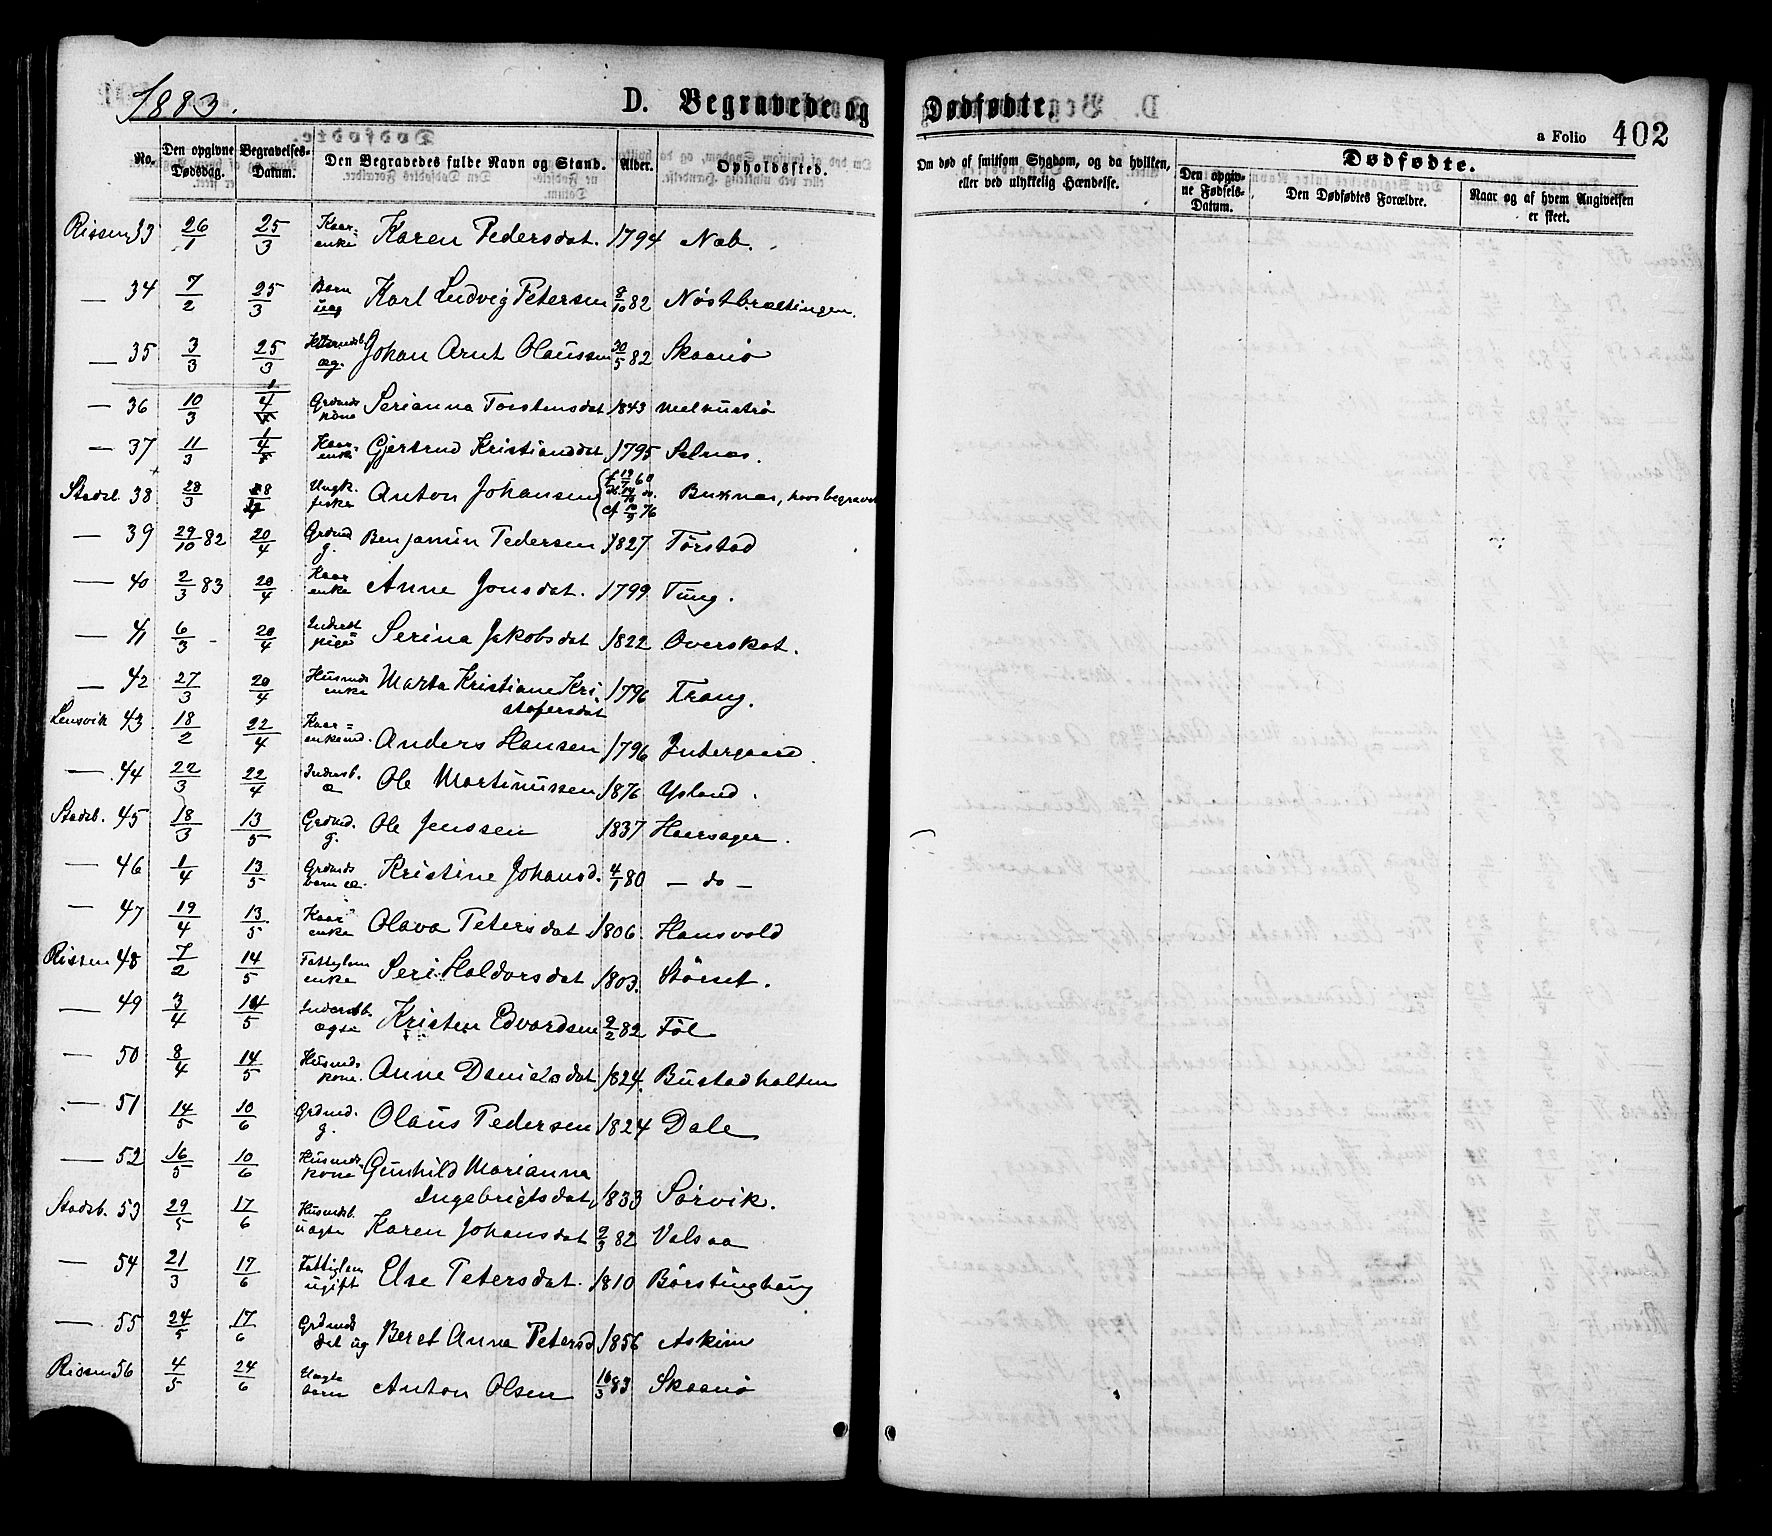 1883.
D. Begravede og Dødfødte.
a Folio 402
No. Den opgivne Dødsdag. Begravelses-Datum. Den Begravedes fulde Navn og Stand. Alder. Opholdssted.
Om død af smitsom Sygdom, og da hvilken, eller ved ulykkelig Hændelse.
Dødfødte.
Den opgivne Fødsels-Datum. Den Dødfødtes Forældre. Naar og af hvem Angivelsen er skeet.
Rissen 33 26/1 25/3 Kaarenke Karen Pedersdat. 1794 Næb.
— 34 7/2 25/3 Barn uæg Karl Ludvig Petersen 8/10 82 Nøstbrættingen.
— 35 3/3 25/3 æg. Johan Arnt Olaussen 30/5 82 Skaanø
— 36 10/3 1/4 Grdmds kone Serianna Torstensdat 1843 Melhustrø
— 37 11/3 1/4 Kaarenke Gjertrud Kristiansdat 1795 Selnæs.
Stadsb. 38 28/3 Ungk. fisker Anton Johansen Buknæs, hvor begravet
— 39 29/10 82 20/4 Grdmd g. Benjamin Pedersen 1827 Førstad
— 40 2/3 83 20/4 Kaarenke Anne Jonsdat. 1799 Tung.
— 41 6/3 - 20/4 Inderst pige Serina Jakobsdat 1822 Overskot.
— 42 27/3 20/4 Husmds enke Marta Kristiane Kristofersdat 1796 Frang.
Lensvik 43 18/2 22/4 Kaarenkemd. Anders Hansen 1796 Indergaard.
— 44 22/3 22/4 Indersb. æ Ole Martinussen 1876 Ysland.
Stadsb. 45 18/3 13/5 Grdmd. g. Ole Jenssen 1837 Haarsager.
— 46 1/4 13/5 Grdmds barn æ. Kristine Johansd. 4/1 80 — do —
— 47 19/4 13/5 Kaarenke Olava Petersdat 1806 Hansvold
Rissen 48 7/2 14/5 Fattiglem enke Seri Haldorsdat 1803. Størset.
— 49 3/4 14/5 Indersdb. ægte Kristen Edvardsen 9/2 82 Føl
— 50 8/4 14/5 Husmds kone. Anne Danielsdat 1824. Bustadhalten
— 51 14/5 10/6 Grdmd. g. Olaus Pedersen 1824 Dale
— 52 16/5 10/6 Husmds kone Gunhild Marianna Ingebrigtsdat 1833 Sørvik.
Stadsb. 53 29/5 17/6 Husmdsb. uægte Karen Johansdat 9/3 82 Valsaa
— 54 21/3 17/6 Fattiglem ugift Else Petersdat. 1810 Børstinghaug
— 55 24/5 17/6 Grdmds dat ug Beret Anna Petersd 1856 Askim
Rissen 56 4/5 24/6 Uægte barn Anton Olsen 16/3 83 Skaanø